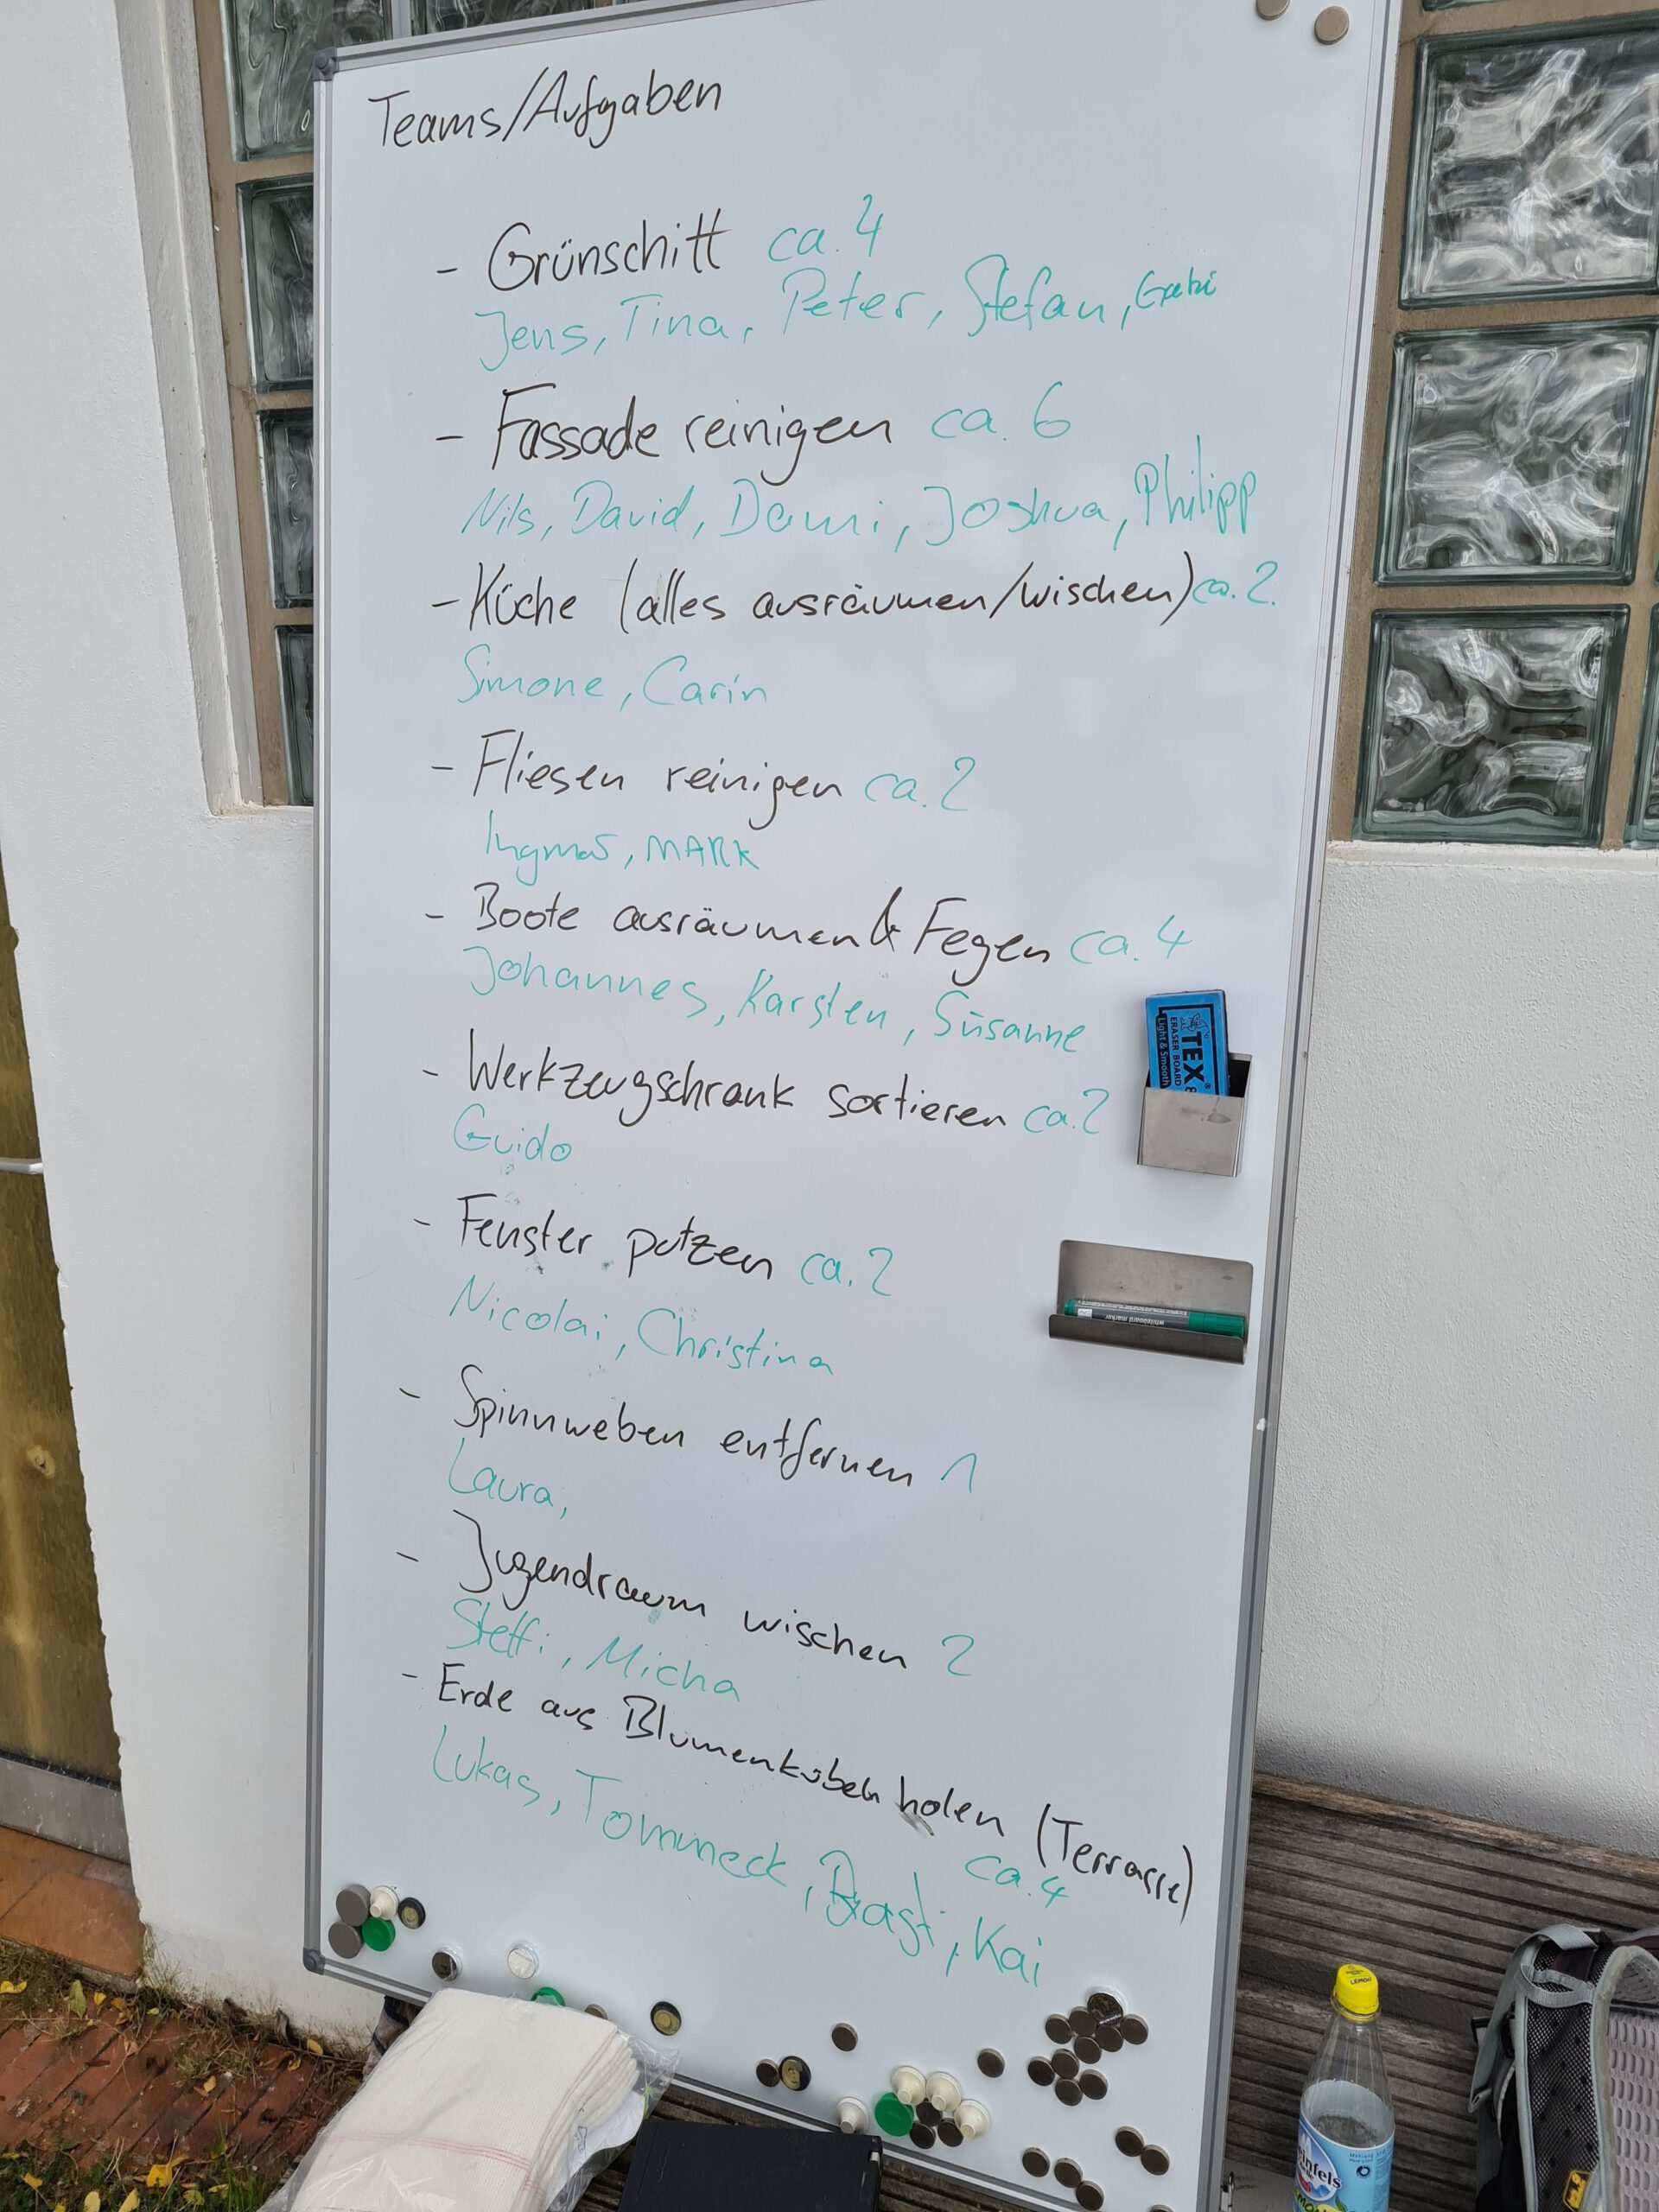 Teams/Aufgaben
- Grünschitt ca. 4
Jens, Tina, Peter, Stefan, Gabi
- Fassade reinigen ca. 6
Nils, David, Dami, Joshua, Philipp
- Küche (alles ausräumen/wischen) ca. 2.
Simone, Carin
- Fliesen reinigen ca. 2
Ingmar, MARK
- Boote ausräumen & Fegen ca. 4
Johannes, Karsten, Susanne
TEX
ERASER BOARD
Light & Smooth
- Werkzeugschrank sortieren ca. 2
Guido
- Fenster putzen ca. 2
Nicolai, Christina
whiteboard marker
- Spinnweben entfernen 1
Laura,
- Jugendraum wischen 2
Steffi, Micha
- Erde aus Blumenkübeln holen (Terrasse)
ca. 4
Lukas, Tommeck, Basti, Kai
LEMON